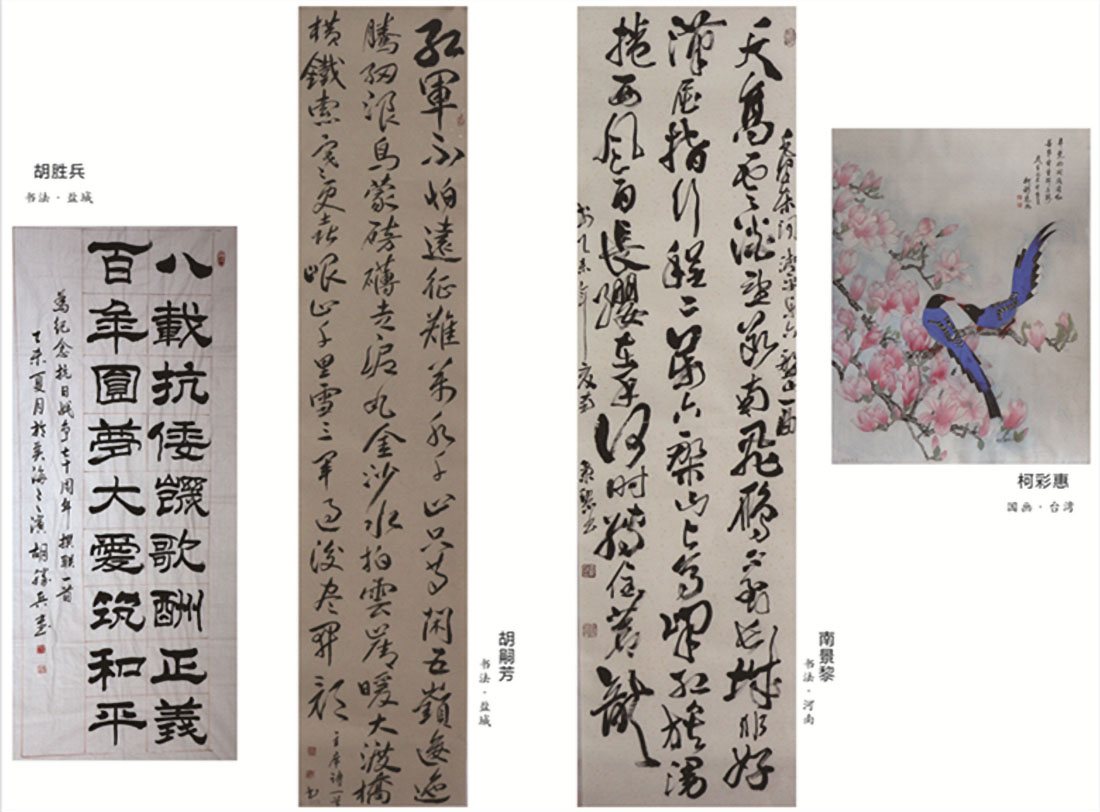 胡胜兵
书法·盐城
八載抗倭饑歌酬正義
百年圓夢大愛筑和平
為紀念抗日戰爭七十周年 撰聯一首
乙未夏月於黃海之濱 胡勝兵書
紅軍不怕遠征難萬水千山只等閑五嶺逶迤
騰細浪烏蒙磅礴走泥丸金沙水拍雲崖暖大渡橋
橫鐵索寒更喜岷山千里雪三軍過後盡開顏
主席詩一首
胡嗣芳
书法·盐城
天高雲淡望斷南飛雁不到長城非好
漢屈指行程二萬六盤山上高峰紅旗漫
捲西風今日長纓在手何時縛住蒼龍
毛澤東詞清平樂六盤山一首
南景黎
书法·河南
柯彩惠
国画·台湾